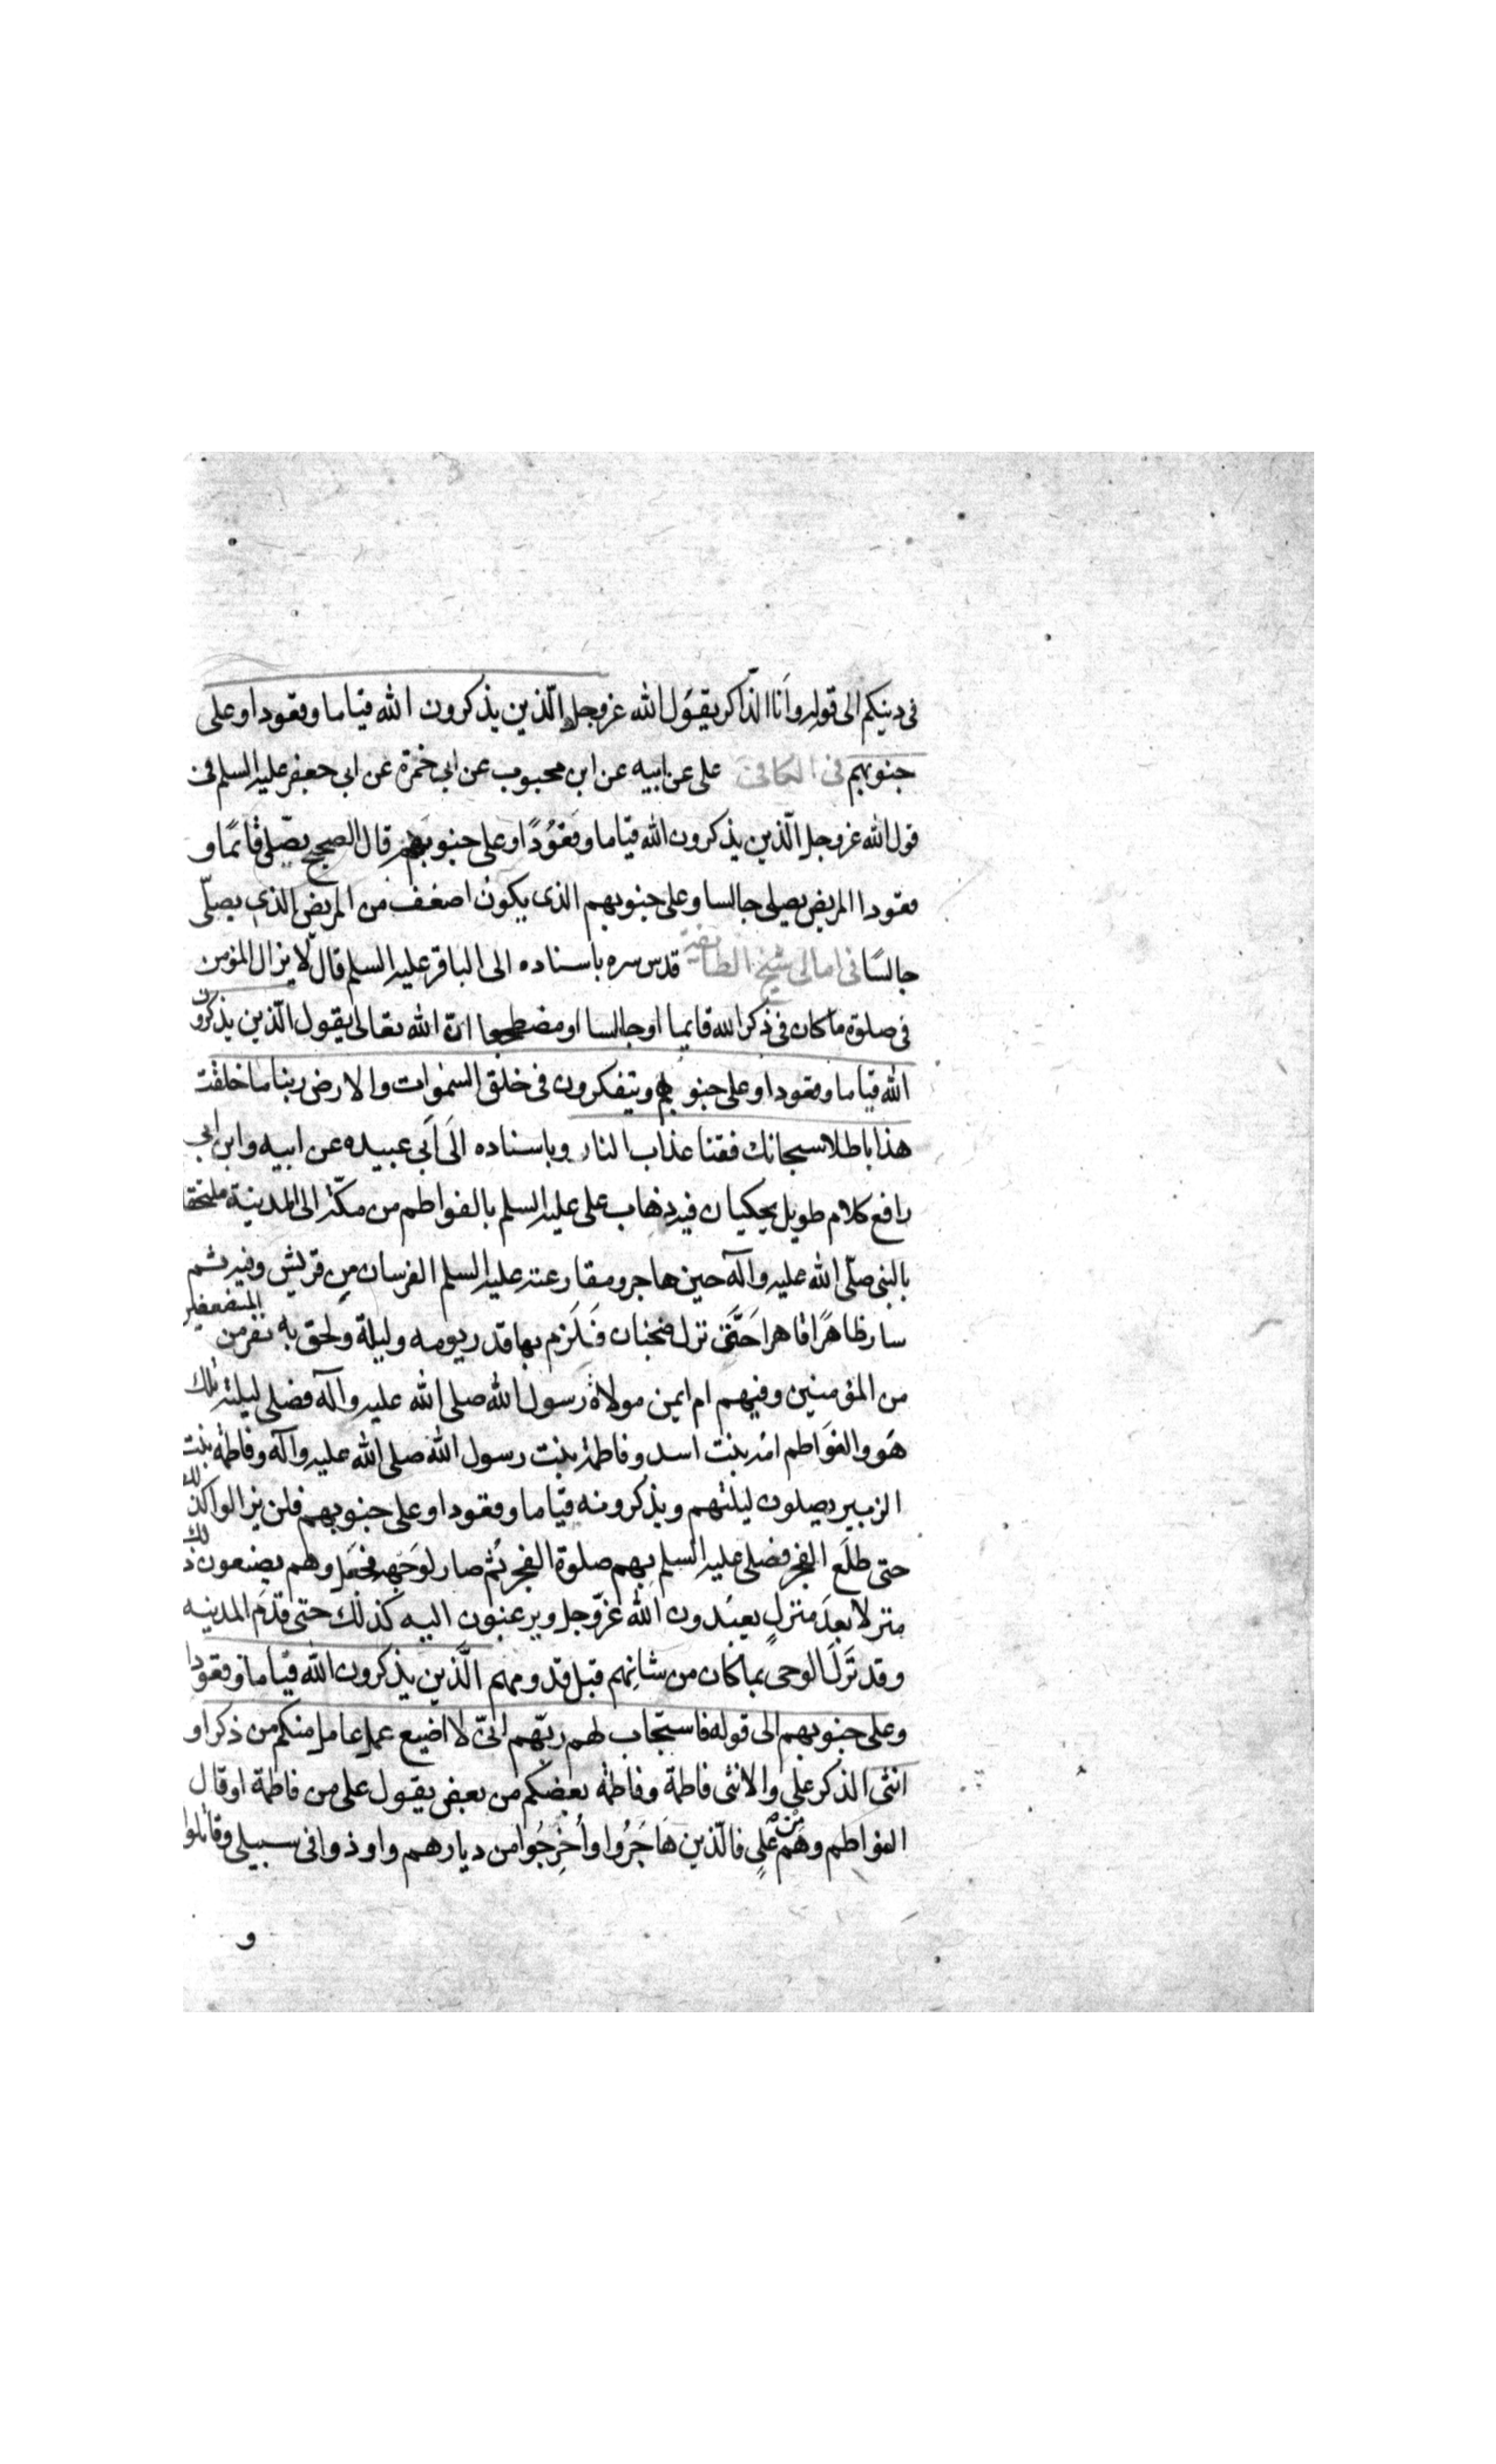 فى دينكم الى قوله وانا الذاكر يقول الله عزوجل الّذين يذكرون الله قياما وقعودا وعلى
جنوبهم فى الكافى على عن ابيه عن ابن محبوب عن ابى حمزة عن ابى جعفر عليه السلم فى
قول الله عزوجل الّذين يذكرون الله قياما وقعُودًا وعلى جنوبهم قال الصحيح يصّلى قائمًا و
قعودا المريض يصلى جالسا وعلى جنوبهم الذى يكون اضعف من المريض الذى يصلّى
جالسًا فى امالى شيخ الطايفة قدس سره باسناده الى الباقر عليه السلم قال لا يزال المؤمن
فى صلوة ما كان فى ذكر الله قايما او جالسا او مضطجعا انّ الله تعالى يقول الّذين يذكرون
الله قياما وقعودا وعلى جنوبهم ويتفكرون فى خلق السموات والارض ربنا ما خلقت
هذا باطلا سبحانك فقنا عذاب النار وباسناده الى ابى عبيده عن ابيه وابن ابى
رافع كلام طويل يحكيان فيه ذهاب على عليه السلم بالفواطم من مكّة الى المدينة ملتحقا
بالنبى صلّى الله عليه وآله حين هاجر ومقارعته عليه السلم الفرسان من قريش وفيه ثم
سار ظاهرًا قاهرا حَتّى نزل ضجنان فَلَزم بها قدر يومه وليلة ولحق به نفر من المستضعفين
من المؤمنين وفيهم ام ايمن مولاة رسول الله صلى الله عليه وآله فصلى ليلته تلك
هَو والفوَاطم امّه بنت اسد وفاطمة بنت رسول الله صلى الله عليه وآله وفاطمة بنت
الزبير يصلون ليلتهم ويذكرونه قياما وقعودا وعلى جنوبهم فلن يزالوا كذلك
حتى طلَع الفجر فصلى عليه السلم بِهم صلوة الفجر ثُم صار لوَجهه فجعل وهم يصنعون ذلك
منزلا بعدَ منزلٍ يعبُدون الله عزّوجل ويرغبون اليه كذلك حتى قدَم المدينه
وقد نَزلَ الوحى بما كان من شانهم قبل قدومهم الَّذين يذكرون الله قياما وقعودا
وعلى جنوبهم الى قوله فاستجاب لهم ربّهم انّى لا اضيع عمل عامل منكم من ذكر او
انثى الذكر على والانثى فاطمة وفاطمة بعضكم من بعض يقول على من فاطمة او قال
الفواطم وهَم من عَلىٍ فالّذين هَاجَرُوا وأُخرِجُوا من ديارهم واوذوا فى سبيلى وقاتلوا
و